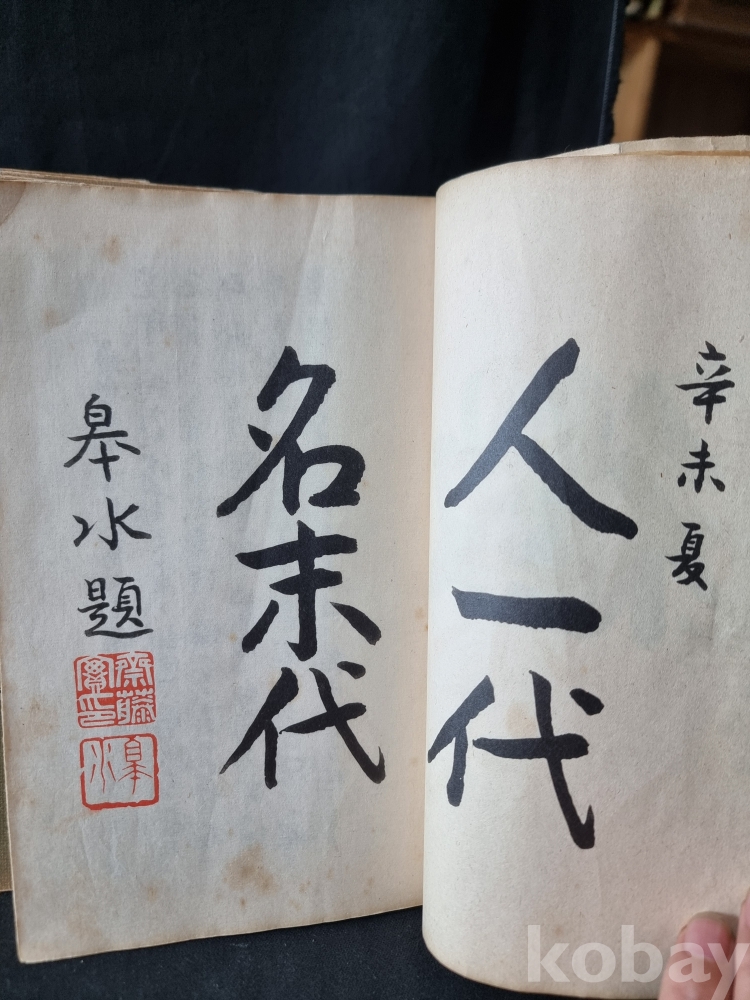 辛未夏
人一代
名末代
皐水題
齋藤實印
皐水
kobay